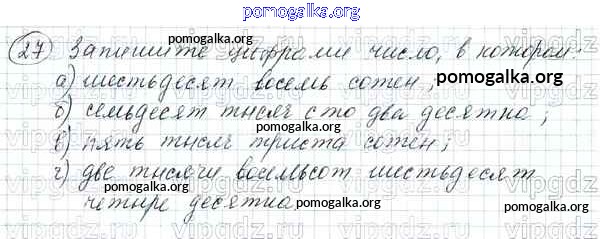 pomogalka.org
27 Запишите цифрами число, в котором:
а) шестьдесят восемь сотен; pomogalka.org
б) семьдесят тысяч сто два десятка;
pomogalka.org
в) пять тысяч триста сотен;
pomogalka.org
г) две тысячи восемьсот шестьдесят
pomogalka.org
четыре десятка pomogalka.org
vipgdz.ru